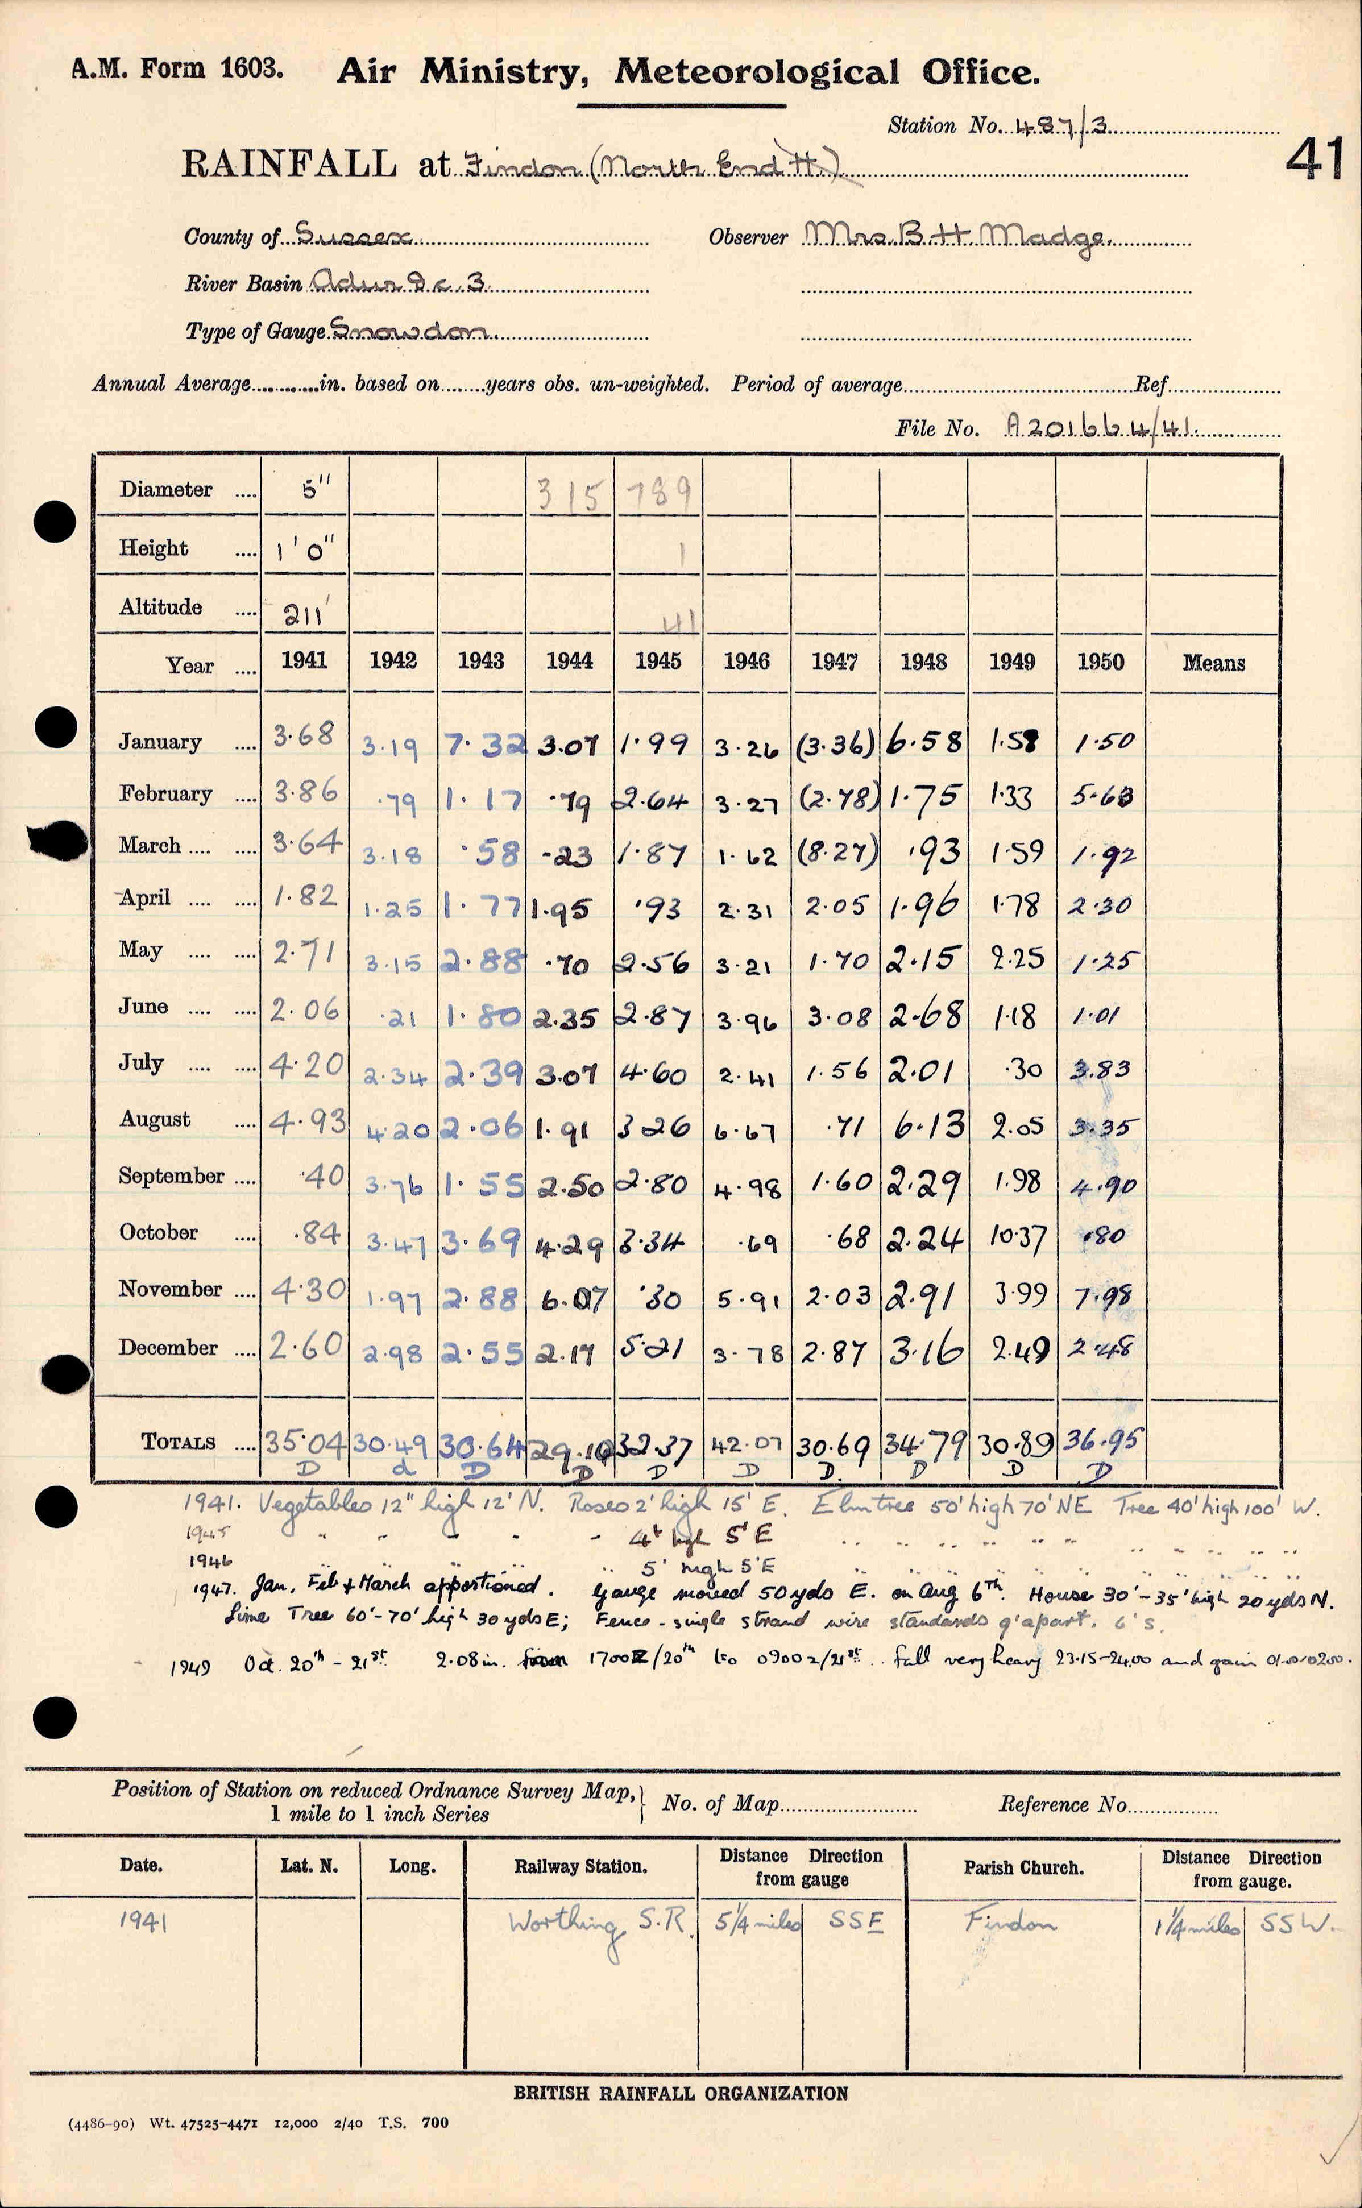 A.M. Form 1603. Air Ministry, Meteorological Office.
Station No. 487/3
41
RAINFALL at Findon (North End H.)
County of Sussex Observer Mrs. B. H. Madge.
River Basin Adur 9 c. 3
Type of Gauge Snowdon
Annual Average............in. based on.......years obs. un-weighted. Period of average Ref
File No. A201664/41
Diameter .... 5" 315 789
Height .... 1'0" 1
Altitude .... 211' 41
Year .... 1941 1942 1943 1944 1945 1946 1947 1948 1949 1950 Means
January .... 3.68 3.19 7.32 3.07 1.99 3.26 (3.36) 6.58 1.58 1.50
February .... 3.86 .79 1.17 .79 2.64 3.27 (2.78) 1.75 1.33 5.63
March .... .... 3.64 3.18 .58 .23 1.87 1.62 (8.27) .93 1.59 1.92
April .... .... 1.82 1.25 1.77 1.95 .93 2.31 2.05 1.96 1.78 2.30
May .... .... 2.71 3.15 2.88 .70 2.56 3.21 1.70 2.15 2.25 1.25
June .... .... 2.06 .21 1.80 2.35 2.87 3.96 3.08 2.68 1.18 1.01
July .... .... 4.20 2.34 2.39 3.07 4.60 2.41 1.56 2.01 .30 3.83
August .... 4.93 4.20 2.06 1.91 3.26 6.67 .71 6.13 2.05 3.35
September .... .40 3.76 1.55 2.50 2.80 4.98 1.60 2.29 1.98 4.90
October .... .84 3.47 3.69 4.29 3.34 .69 .68 2.24 10.37 .80
November .... 4.30 1.97 2.88 6.07 .30 5.91 2.03 2.91 3.99 7.98
December .... 2.60 2.98 2.55 2.17 5.21 3.78 2.87 3.16 2.49 2.48
TOTALS .... 35.04 30.49 30.64 29.10 32.37 42.07 30.69 34.79 30.89 36.95
D d D D D D D. D D D
1941. Vegetables 12" high 12' N. Roses 2' high 15' E. Elm tree 50' high 70' NE Tree 40' high 100' W.
1945 " " " " " 4' high 5' E " " " " " " " " " " "
1946 " " " " " 5' high 5' E " " " " " " " " " " "
1947. Jan, Feb + March apportioned. Gauge moved 50 yds E. on Aug 6th. House 30'-35' high 20 yds N.
Lime Tree 60'-70' high 30 yds E; Fence - single strand wire standards 9' apart. 6's.
1949 Oct 20th - 21st 2.08 in. from 1700Z/20th to 0900Z/21st. fall very heavy 23.15-24.00 and again 01.00-02.00.
Position of Station on reduced Ordnance Survey Map, 1 mile to 1 inch Series } No. of Map Reference No.
Date. Lat. N. Long. Railway Station. Distance Direction from gauge Parish Church. Distance Direction from gauge.
1941 Worthing S.R. 5 1/4 miles SSE Findon 1 1/4 miles SSW.
BRITISH RAINFALL ORGANIZATION
(4486-90) Wt. 47525-4471 12,000 2/40 T.S. 700